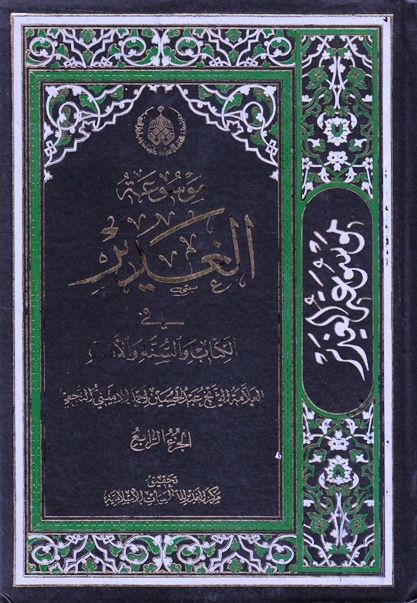 موسوعة
الغدير
في
الكتاب والسنة والأدب
العلامة الشيخ عبد الحسين أحمد الاميني النجفي
الجزء الرابع
تحقيق
مركز الغدير للدراسات الإسلامية
موسوعة الغدير